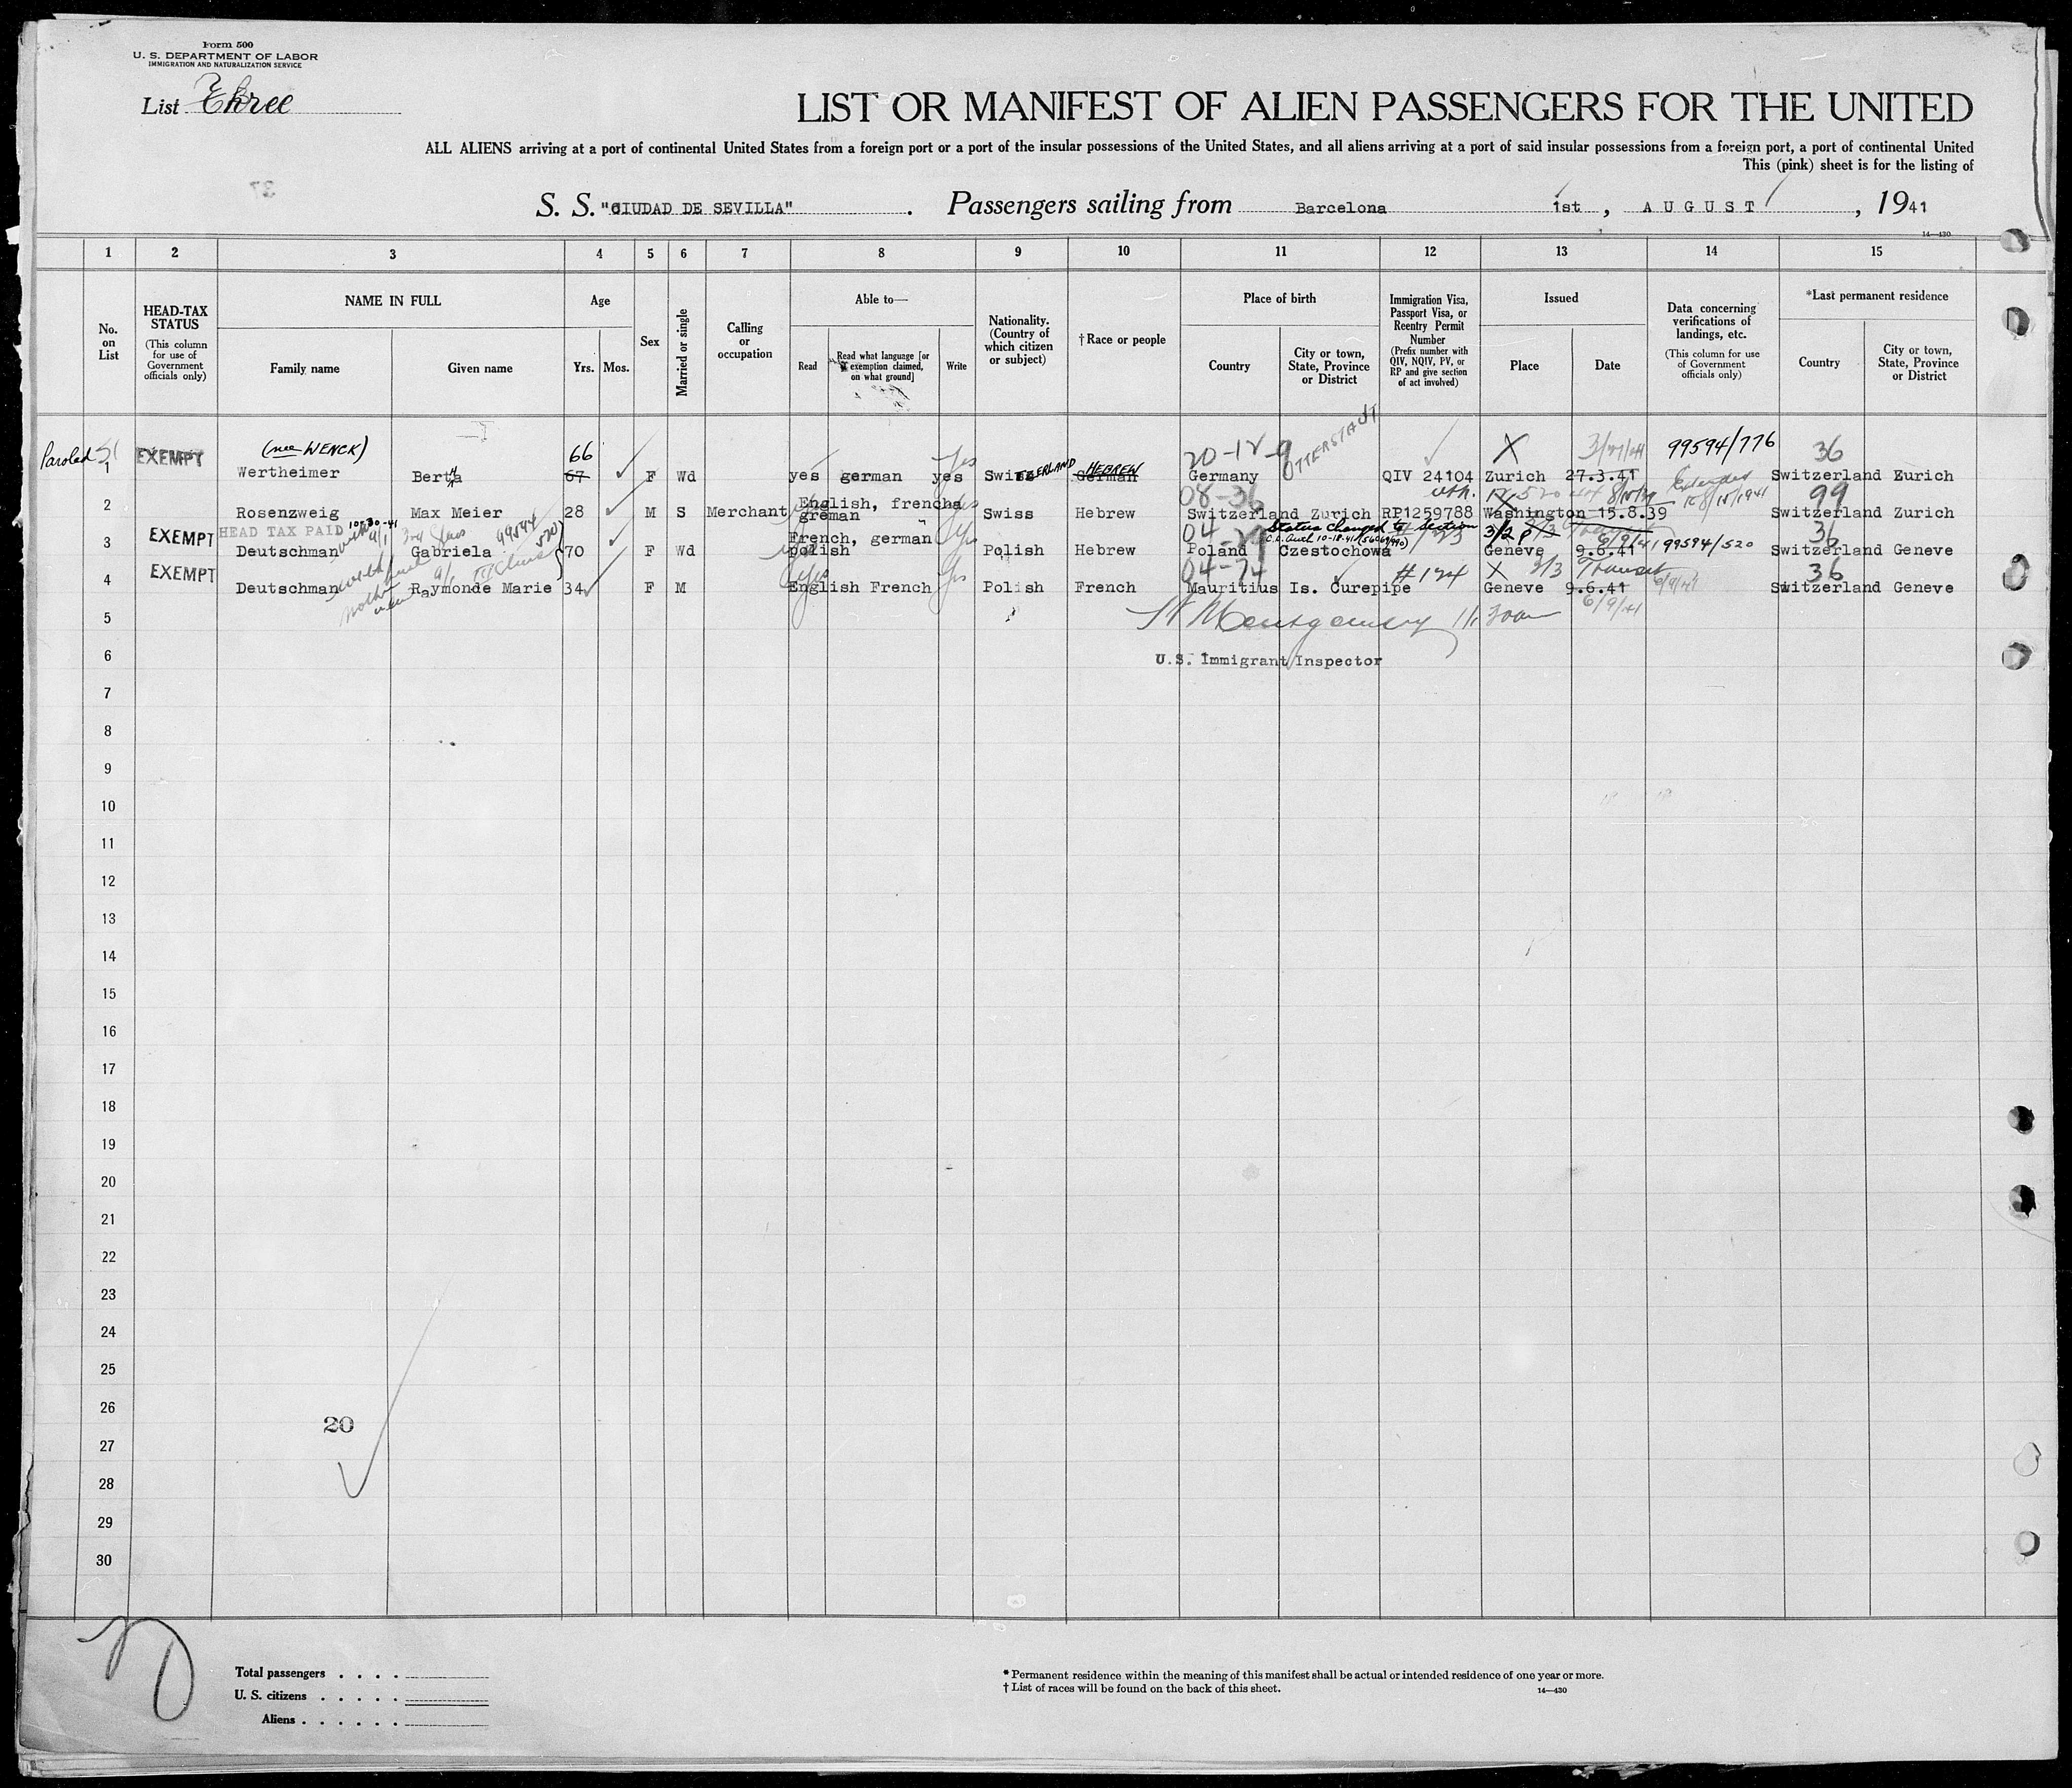 Form 500
U. S. DEPARTMENT OF LABOR
IMMIGRATION AND NATURALIZATION SERVICE
List Three
LIST OR MANIFEST OF ALIEN PASSENGERS FOR THE UNITED
ALL ALIENS arriving at a port of continental United States from a foreign port or a port of the insular possessions of the United States, and all aliens arriving at a port of said insular possessions from a foreign port, a port of continental United
This (pink) sheet is for the listing of
37
S. S. "CIUDAD DE SEVILLA" . Passengers sailing from Barcelona 1st , AUGUST , 1941
14—430
1 2 3 4 5 6 7 8 9 10 11 12 13 14 15
No. on List
HEAD-TAX STATUS
(This column for use of Government officials only)
NAME IN FULL
Family name Given name
Age
Yrs. Mos.
Sex
Married or single
Calling or occupation
Able to—
Read
Read what language [or exemption claimed, on what ground]
Write
Nationality. (Country of which citizen or subject)
†Race or people
Place of birth
Country
City or town, State, Province or District
Immigration Visa, Passport Visa, or Reentry Permit Number
(Prefix number with QIV, NQIV, PV, or RP and give section of act involved)
Issued
Place Date
Data concerning verifications of landings, etc.
(This column for use of Government officials only)
*Last permanent residence
Country
City or town, State, Province or District
Paroled EXEMPT (nee WENCK) 66 yes 20-12-9 OTTERSTADT X 3/27/41 99594/776 36
1 Wertheimer Bertha 67 F Wd yes german yes Swiss ERLAND German HEBREW Germany QIV 24104 Zurich 27.3.41 Switzerland Zurich
08-36 8/15/39 Extended to 8/15/1941 99
2 Rosenzweig Max Meier 28 M S Merchant English, french greman Swiss Hebrew Switzerland Zurich RP1259788 Washington 15.8.39 Switzerland Zurich
EXEMPT HEAD TAX PAID 10-30-41 99594/520 yes Status changed to Section 3/2 6/9/41 36
3 Deutschman Gabriela 70 F Wd French, german polish Polish Hebrew Poland Czestochowa Geneve 9.6.41 99594/520 Switzerland Geneve
EXEMPT yes yes 04-74 #124 X 3/3 Transit 6/9/41 36
4 Deutschman Raymonde Marie 34 F M English French Polish French Mauritius Is. Curepipe Geneve 9.6.41 Switzerland Geneve
6/9/41
5 Montgomery
6 U.S. Immigrant Inspector
7
8
9
10
11
12
13
14
15
16
17
18
19
20
21
22
23
24
25
26
20
27
28
29
30
Total passengers . . . .
U. S. citizens . . . . .
Aliens . . . . . .
* Permanent residence within the meaning of this manifest shall be actual or intended residence of one year or more.
† List of races will be found on the back of this sheet.
14—430